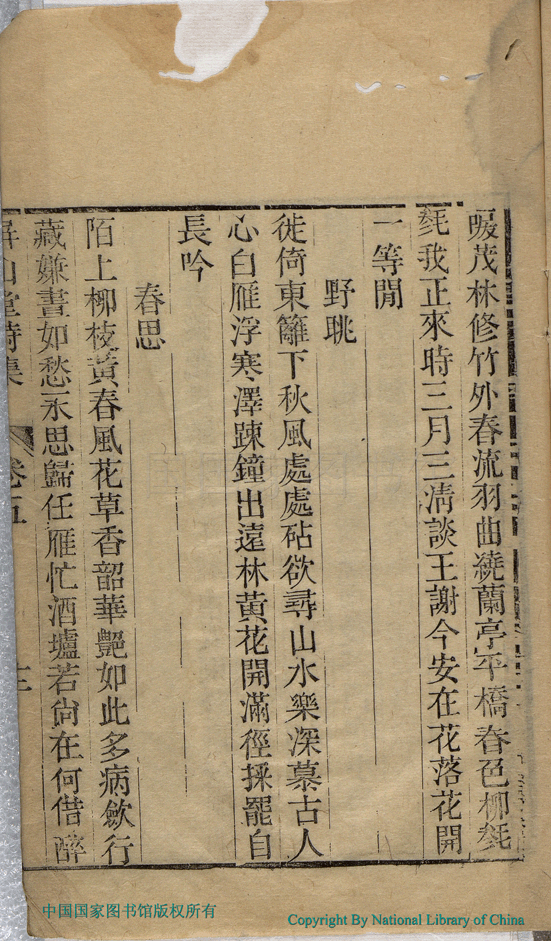 暖茂林修竹外春流羽曲繞蘭亭平橋春色柳毿
毿我正來時三月三清談王謝今安在花落花開
一等閒
野眺
徙倚東籬下秋風處處砧欲尋山水樂深慕古人
心白雁浮寒澤踈鐘出遠林黃花開滿徑採罷自
長吟
春思
陌上柳枝黃春風花草香韶華艷如此多病歛行
藏嫌晝如愁永思歸任雁忙酒壚若尙在何借醉
屏山堂詩集
卷五
中国国家图书馆版权所有
Copyright By National Library of China